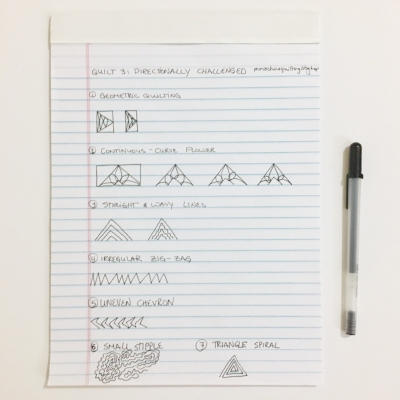 QUILT 3: DIRECTIONALLY CHALLENGED
① GEOMETRIC QUILTING
② CONTINUOUS-CURVE FLOWER
3 STRAIGHT & WAVY LINES
4 IRREGULAR ZIG-ZAG
5 UNEVEN CHEVRON
⑥ SMALL STIPPLE ⑦ TRIANGLE SPIRAL